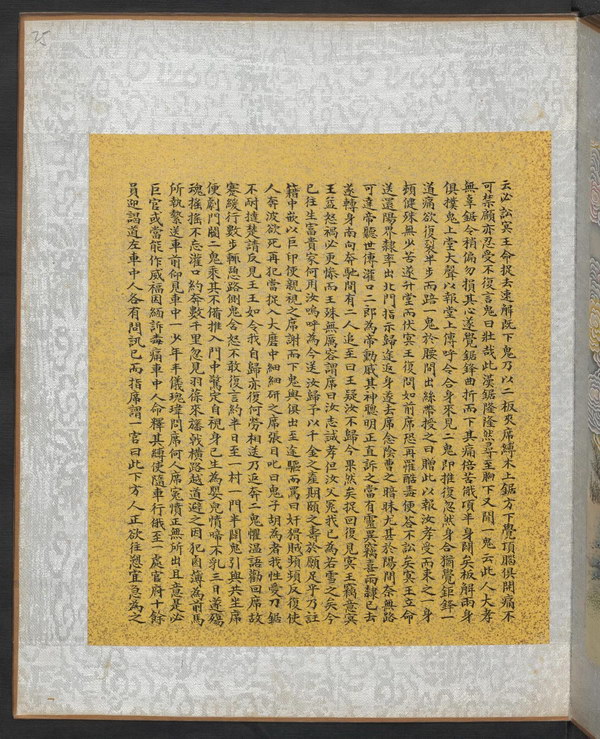 云必訟冥王命捉去速解既下鬼刀以二板夾席縛木上鋸方下覺頂腦俱開痛不
可禁顧亦忍受不復言鬼曰壯哉此漢鋸隆隆然尋至胸下又聞一鬼云此人大孝
無辜鋸令稍偏勿損其心遂覺鋸鋒曲折而下其痛倍苦俄頃半身闢矣板解兩身
俱撲鬼上堂大聲以報堂上傳呼令合身來見二鬼即推復忽然身合猶覺鋸鋒一
道痛欲復裂半步而踣一鬼於腰間出絲帶授之曰贈此以報汝孝受而束之一身
頓健殊無少苦遂升堂而伏冥王復問如前席恐再罹酷毒便答不訟矣冥王立命
送還陽界隸率出北門指示歸途返身遂去席念陰曹之暗昧尤甚於陽間奈無路
可達帝聽世傳灌口二郎為帝勳戚其神聰明正直訴之當有靈異竊喜兩隸已去
遂轉身南向奔馳間有二人追至曰王疑汝不歸今果然矣捉回復見冥王竊意冥
王益怒禍必更慘而王殊無厲容謂席曰汝志誠孝但汝父冤我已為若雪之矣今
已往生富貴家何用汝鳴呼為今送汝歸予以千金之產期頤之壽於願足乎乃註
籍中嵌以巨印使親視之席謝而下鬼與俱出至途驅而罵曰奸猾賊頻頻反復使
人奔波欲死再犯當捉入大磨中細細研之席張目叱曰鬼子胡為者我性受刀鋸
不耐撻楚請反見王王如令我自歸亦復何勞相送乃返奔二鬼懼溫語勸回席故
蹇緩行數步輒憩路側鬼含怒不敢復言約半日至一村一門半闢鬼引與共坐席
便劇門閾二鬼乘其不備推入門中驚定自視身已生為嬰兒憤啼不乳三日遂殤
魂搖搖不忘灌口約奔數千里忽見羽葆來旛戟橫路越道避之因犯鹵薄為前馬
所執縶送車前仰見車中一少年丰儀瑰瑋問席何人席冤憤正無所出且意是必
巨官或當能作威福因緬訴毒痛車中人命釋其縛使隨車行俄至一處官府十餘
員迎謁道左車中人各有問訊已而指席謂一官曰此下方人正欲往愬宜急為之
25